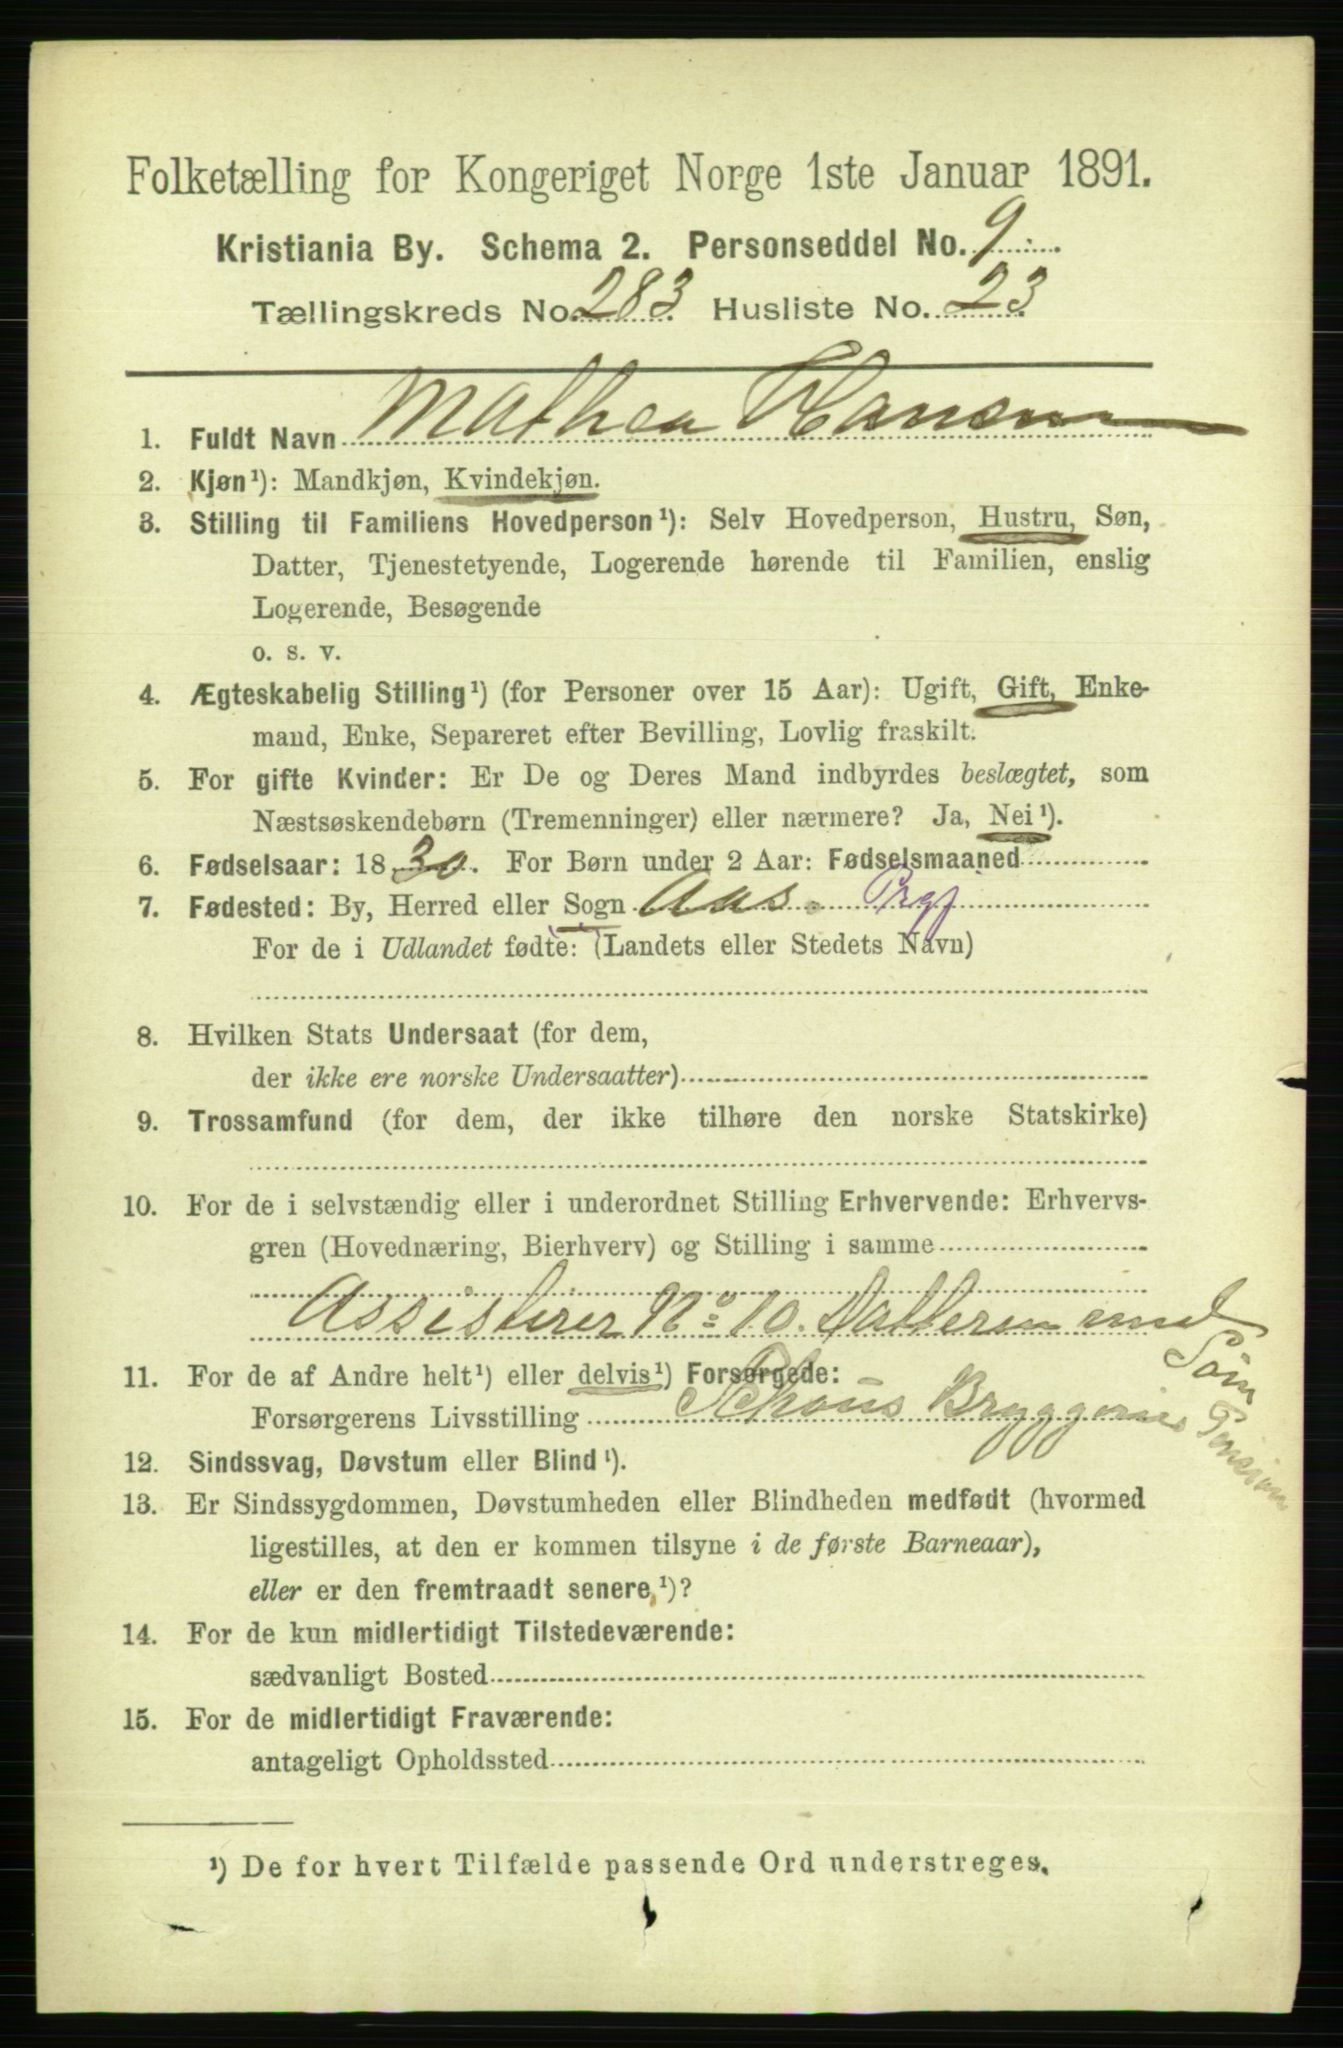 Folketælling for Kongeriget Norge 1ste Januar 1891.
Kristiania By. Schema 2. Personseddel No. 9
Tællingskreds No. 283 Husliste No. 23
1. Fuldt Navn Mathea Hansen
2. Kjøn¹): Mandkjøn, Kvindekjøn.
3. Stilling til Familiens Hovedperson¹): Selv Hovedperson, Hustru, Søn,
Datter, Tjenestetyende, Logerende hørende til Familien, enslig
Logerende, Besøgende
o. s. v.
4. Ægteskabelig Stilling¹) (for Personer over 15 Aar): Ugift, Gift, Enke-
mand, Enke, Separeret efter Bevilling, Lovlig fraskilt.
5. For gifte Kvinder: Er De og Deres Mand indbyrdes beslægtet, som
Næstsøskendebørn (Tremenninger) eller nærmere? Ja, Nei¹).
6. Fødselsaar: 1830. For Børn under 2 Aar: Fødselsmaaned
7. Fødested: By, Herred eller Sogn Aas. Prgj
For de i Udlandet fødte: (Landets eller Stedets Navn)
8. Hvilken Stats Undersaat (for dem,
der ikke ere norske Undersaatter)
9. Trossamfund (for dem, der ikke tilhøre den norske Statskirke)
10. For de i selvstændig eller i underordnet Stilling Erhvervende: Erhvervs-
gren (Hovednæring, Bierhverv) og Stilling i samme
Assisterer No 10. Datteren med
Søm
11. For de af Andre helt¹) eller delvis¹) Forsørgede:
Forsørgerens Livsstilling Schous Bryggeries
12. Sindssvag, Døvstum eller Blind¹).
13. Er Sindssygdommen, Døvstumheden eller Blindheden medfødt (hvormed
ligestilles, at den er kommen tilsyne i de første Barneaar),
eller er den fremtraadt senere,¹)?
14. For de kun midlertidigt Tilstedeværende:
sædvanligt Bosted
15. For de midlertidigt Fraværende:
antageligt Opholdssted
¹) De for hvert Tilfælde passende Ord understreges.